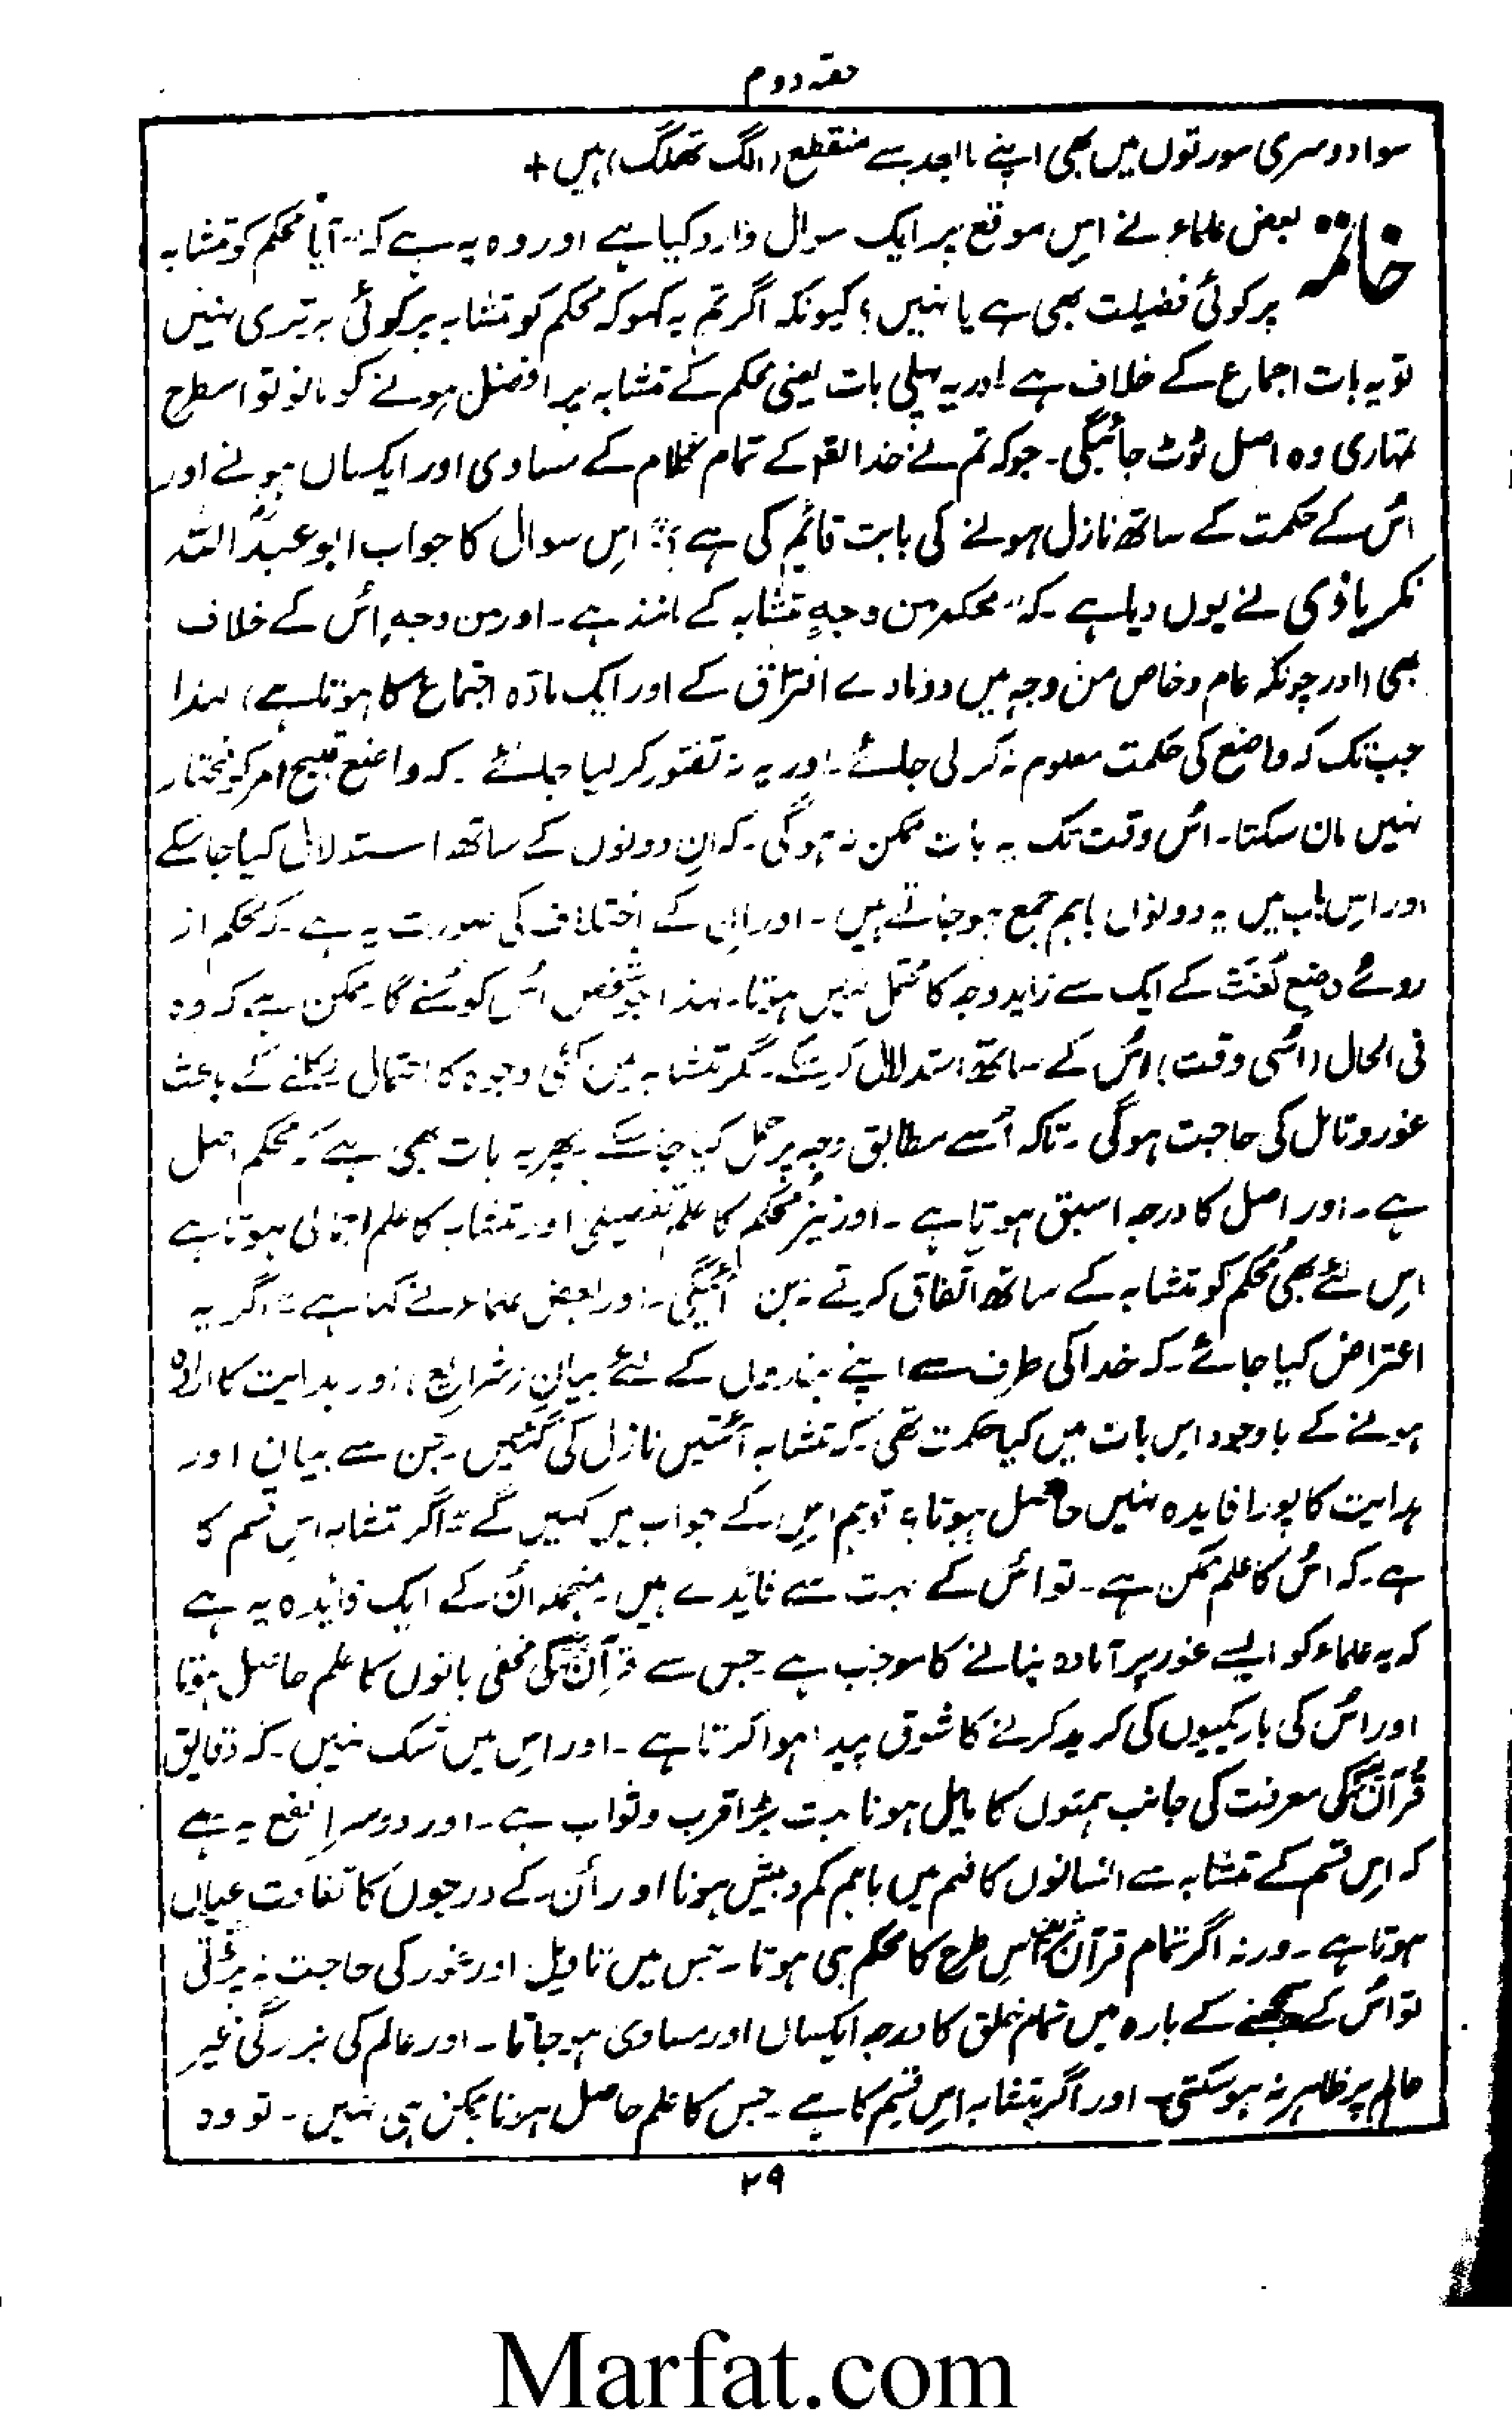 حصہ دوم
سوا دوسری سورتوں میں بھی اپنے مابعد سے منقطع (الگ تھلگ) ہیں +
خاتمہ بعض علماء نے اِس موقع پر ایک سوال وارد کیا ہے اور وہ یہ ہے کہ "آیا محکم کو متشابہ
پر کوئی فضیلت بھی ہے یا نہیں؟ کیونکہ اگر تم یہ کہو کہ محکم کو متشابہ پر کوئی برتری نہیں
تو یہ بات اجماع کے خلاف ہے اور یہ پہلی بات یعنی محکم کے متشابہ پر افضل ہونے کو مانو تو اسطرح
تمہاری وہ اصل ٹوٹ جائیگی۔ جو کہ تم نے خدا تعالٰے کے تمام کلام کے مساوی اور ایکساں ہونے اور
اُس کے حکمت کے ساتھ نازل ہونے کی بابت قائم کی ہے؟" اِس سوال کا جواب ابو عبد اللہ
نکرباذی نے یوں دیا ہے۔ کہ "محکم من وجہٍ متشابہ کے مانند ہے۔ اور من وجہٍ اُس کے خلاف
بھی (اور چونکہ عام و خاص من وجہ میں دو مادے افتراق کے اور ایک مادّہ اجتماع کا ہوتا ہے) لہذا
جب تک کہ واضع کی حکمت معلوم نہ کر لی جائے۔ اور یہ نہ تصّور کر لیا جائے۔ کہ واضع قبیح امر کو مختار
نہیں مان سکتا۔ اُس وقت تک یہ بات ممکن نہ ہوگی۔ کہ اِن دونوں کے ساتھ استدلال کیا جاسکے
اور اِس باب میں یہ دونوں باہم جمع ہو جاتے ہیں۔ اور اِن کے اختلاف کی صورت یہ ہے۔ کہ محکم از
روئے وضع لُغت کے ایک سے زاید وجہ کا محتمل نہیں ہوتا۔ لہذا جو شخص اُس کو سُنے گا۔ ممکن ہے کہ وہ
فی الحال (اُسی وقت) اُس کے ساتھ استدلال کر سکے۔ مگر متشابہ میں کئی وجوہ کا احتمال نکلنے کے باعث
غور و تامل کی حاجت ہوگی۔ تاکہ اُسے مطابق وجہ پر حمل کیا جاسکے۔ پھر یہ بات بھی ہے کہ محکم اصل
ہے۔ اور اصل کا درجہ اسبق ہوتا ہے۔ اور نیز محکم کا علم تفصیلی اور متشابہ کا علم اجمالی ہوتا ہے
اِس لئے بھی محکم کو متشابہ کے ساتھ اتفاق کرتے نہ بن آئیگی۔ اور بعض علماء نے کہا ہے "اگر یہ
اعتراض کیا جائے۔ کہ خدا کی طرف سے اپنے بندوں کے لئے بیان (شرایع) اور ہدایت کا ارادہ
ہونے کے باوجود اِس بات میں کیا حکمت تھی۔ کہ متشابہ آئتیں نازل کی گئیں۔ جن سے بیان اور
ہدایت کا پورا فایدہ نہیں حاصل ہوتا؟ تو ہم اِس کے جواب میں کہیں گے "اگر متشابہ اِس قسم کا
ہے۔ کہ اُس کا علم ممکن ہے۔ تو اُس کے بہت سے فائدے ہیں۔ منجملہ اُن کے ایک فائدہ یہ ہے
کہ یہ علماء کو ایسے غور پر آمادہ بنانے کا موجب ہے۔ جس سے قرآن کی مخفی باتوں کا علم حاصل ہوتا
اور اُس کی باریکیوں کی کرید کرنے کا شوق پیدا ہوا کرتا ہے۔ اور اِس میں شک نہیں۔ کہ دقایق
قرآن کی معرفت کی جانب ہمتوں کا مایل ہونا بہت بڑا قرب و ثواب ہے۔ اور دوسرا نفع یہ ہے
کہ اِس قسم کے متشابہ سے انسانوں کا فہم میں باہم کم و بیش ہونا اور اُن کے درجوں کا تفاوت عیاں
ہوتا ہے۔ ورنہ اگر تمام قرآن اِس طرح کا محکم ہی ہوتا۔ جس میں تاویل اور غور کی حاجت نہ پڑتی
تو اُس کے سمجھنے کے بارہ میں تمام خلق کا درجہ ایکساں اور مساوی ہو جاتا۔ اور عالم کی بزرگی غیر
عالم پر ظاہر نہ ہوسکتی۔ اور اگر متشابہ اِس قسم کا ہے۔ جس کا علم حاصل ہونا ممکن ہی نہیں۔ تو وہ
۲۹
Marfat.com